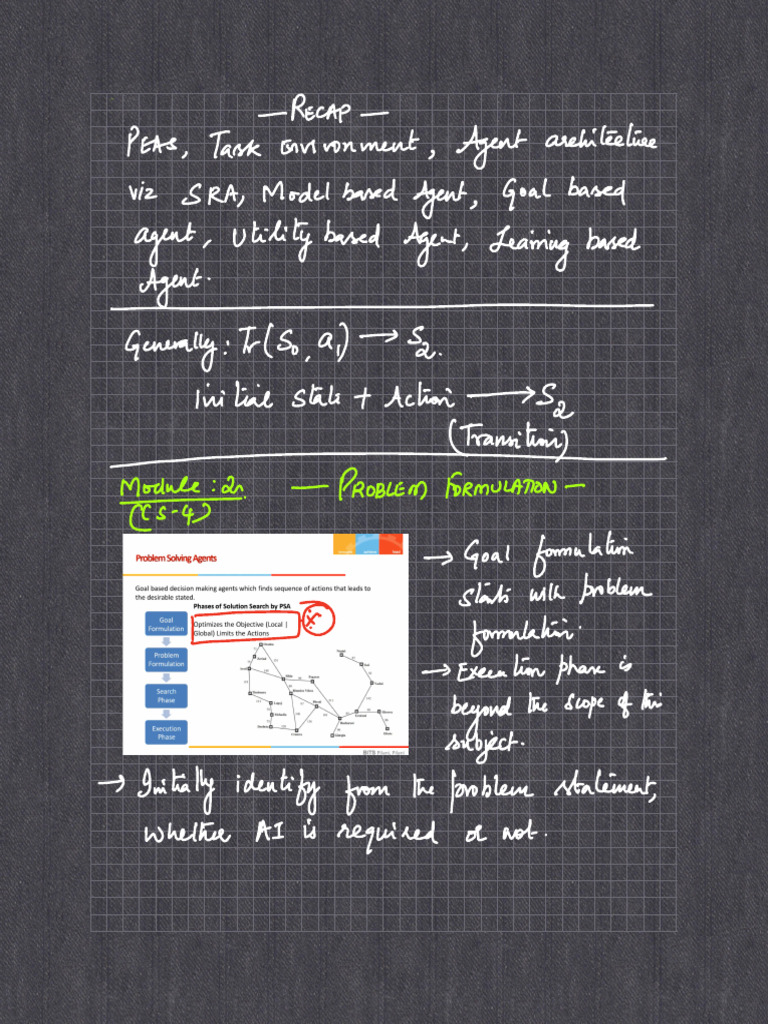 — RECAP —
PEAS, Task environment, Agent architecture
viz SRA, Model based Agent, Goal based
agent, Utility based Agent, Learning based
Agent.
Generally: Tr(S₀, a₁) → S₂.
Initial State + Action → S₂
(Transition)
Module: 2
(CS-4)
— PROBLEM FORMULATION —
Problem Solving Agents
Goal based decision making agents which finds sequence of actions that leads to
the desirable stated.
Phases of Solution Search by PSA
Goal
Formulation
Optimizes the Objective (Local |
Global) Limits the Actions
Problem
Formulation
Search
Phase
Execution
Phase
BITS Pilani, Pilani
→ Goal formulation
starts with problem
formulation.
→ Execution phase is
beyond the scope of this
subject.
→ Initially identify from the problem statement,
whether AI is required or not.